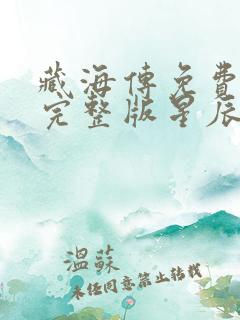 藏海傳免費
完整版星辰
溫蘇
未经同意禁止转载